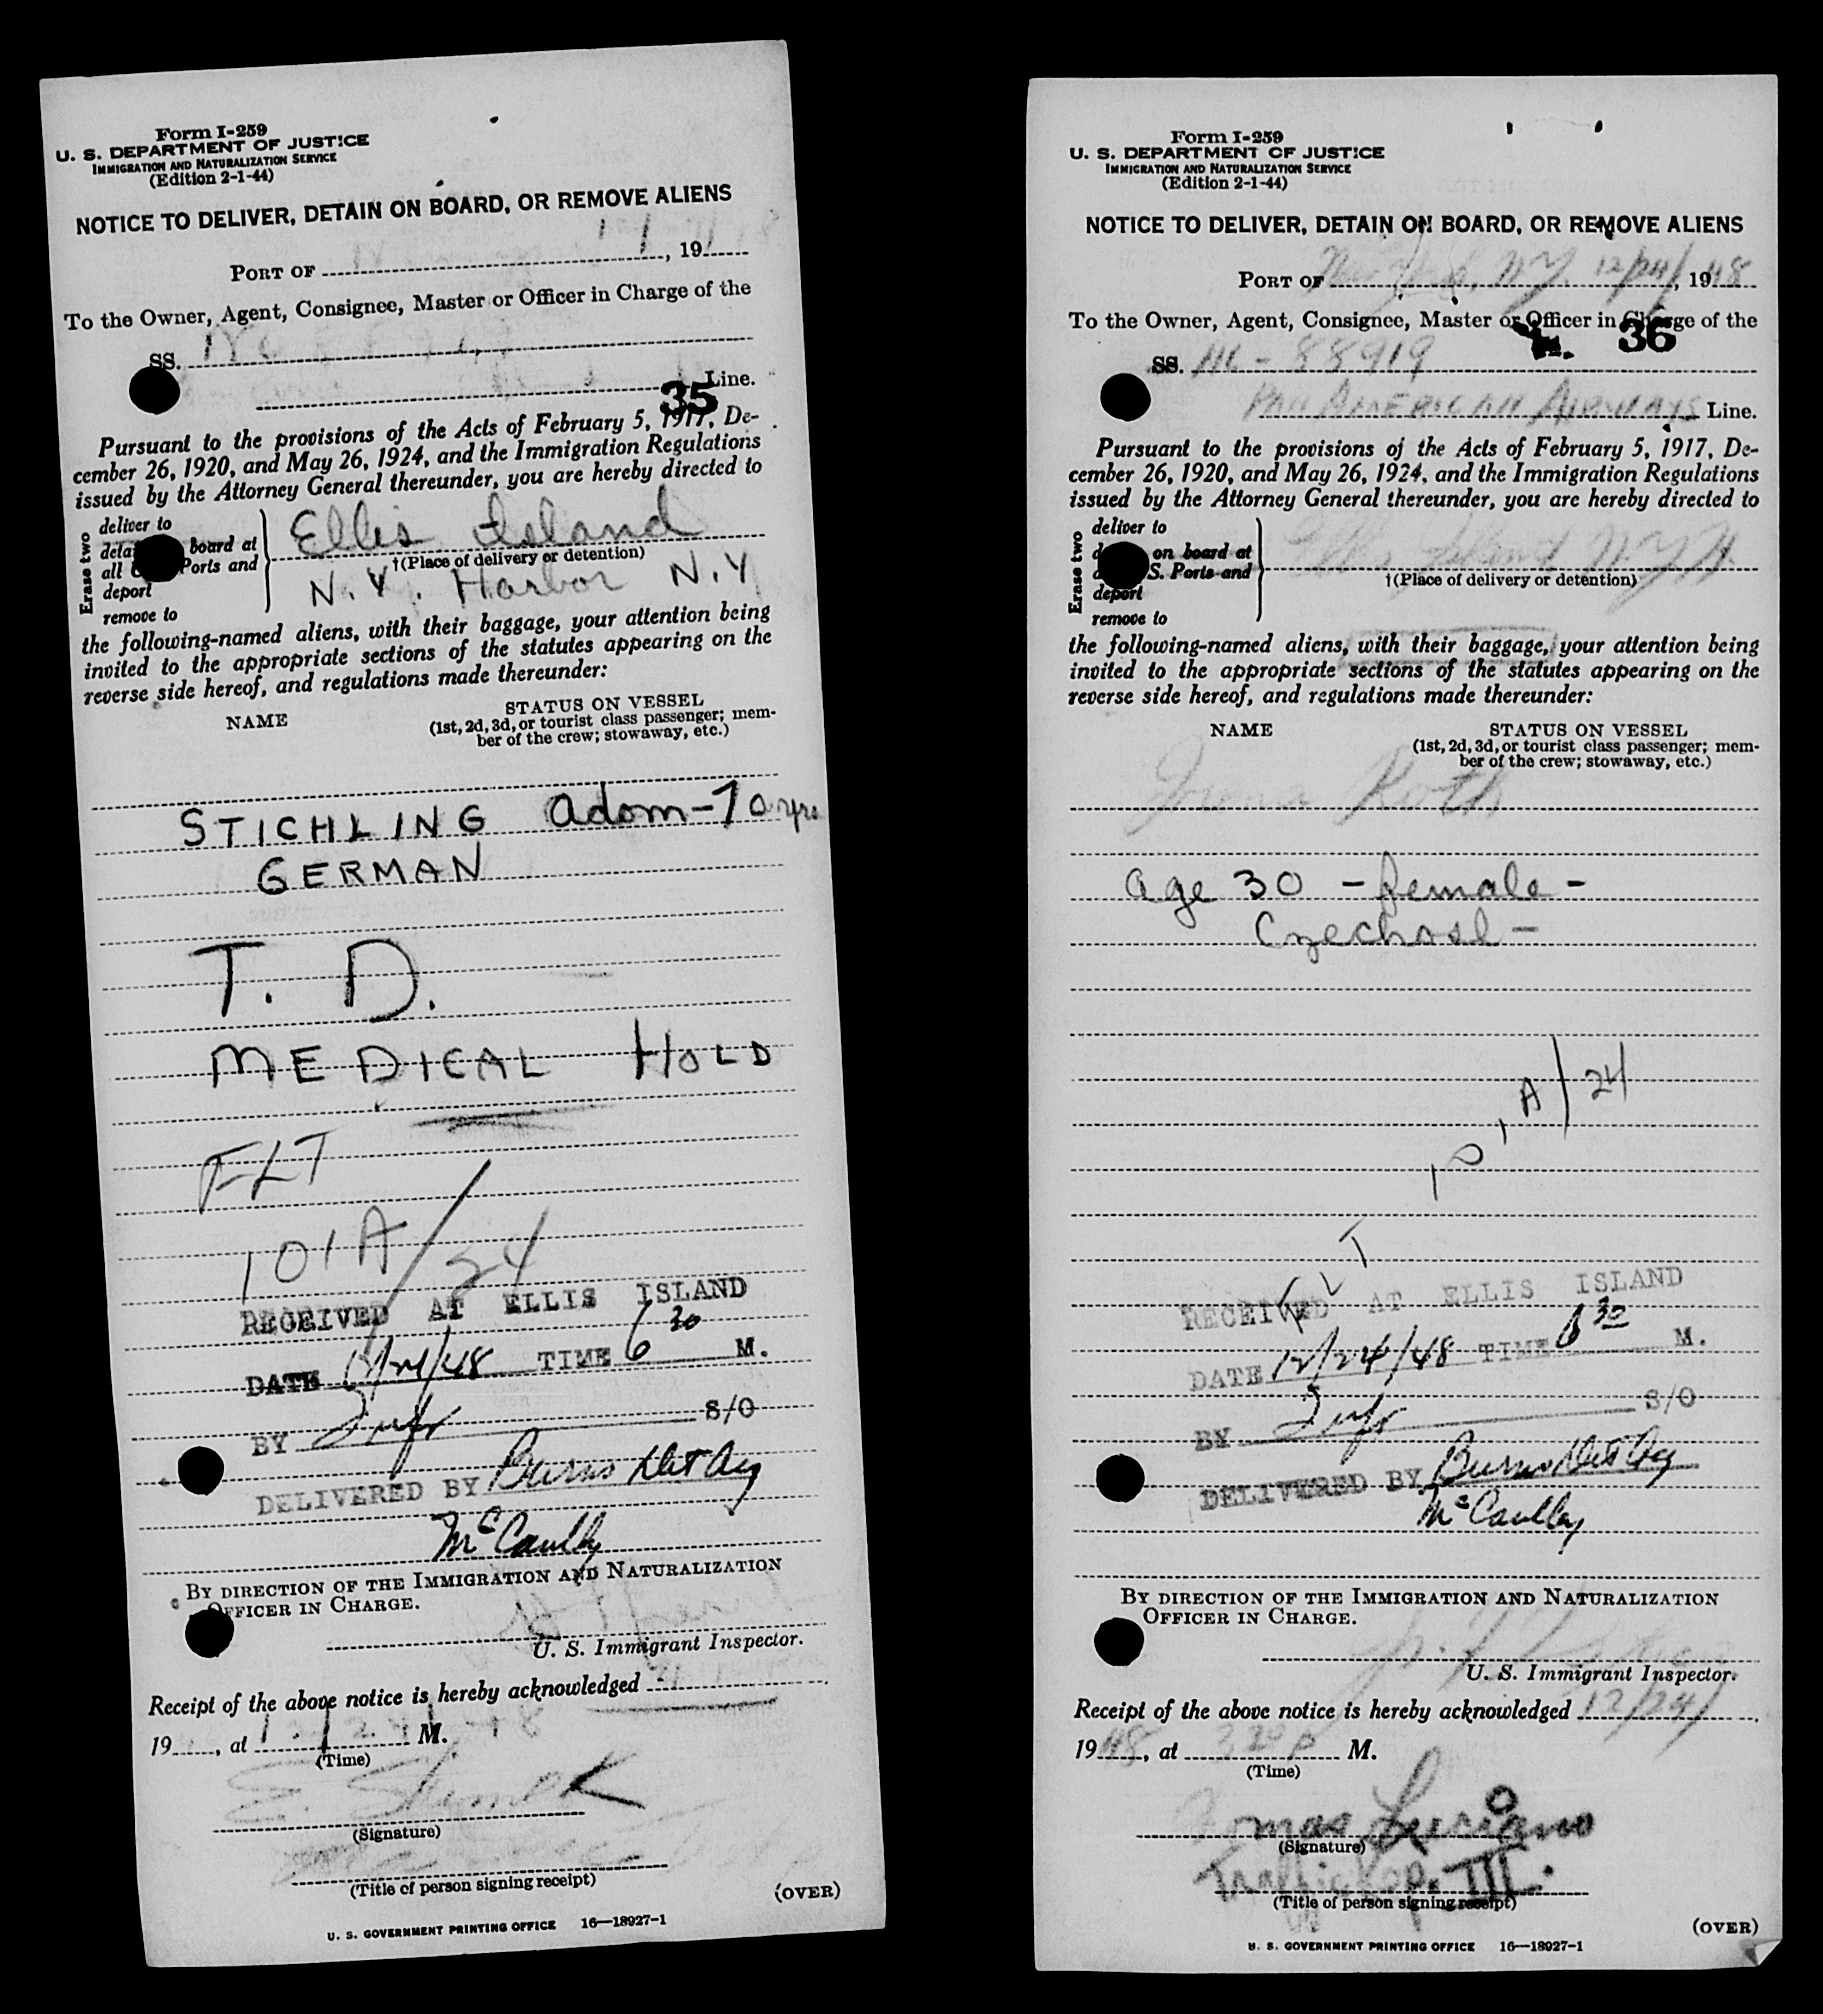 Form I-259
U. S. DEPARTMENT OF JUSTICE
IMMIGRATION AND NATURALIZATION SERVICE
(Edition 2-1-44)
NOTICE TO DELIVER, DETAIN ON BOARD, OR REMOVE ALIENS
PORT OF , 19
To the Owner, Agent, Consignee, Master or Officer in Charge of the
SS.
Line.
35
Pursuant to the provisions of the Acts of February 5, 1917, De-
cember 26, 1920, and May 26, 1924, and the Immigration Regulations
issued by the Attorney General thereunder, you are hereby directed to
Erase two
deliver to
board at
all Ports and
deport
remove to
Ellis Island
†(Place of delivery or detention)
N.Y. Harbor N.Y
the following-named aliens, with their baggage, your attention being
invited to the appropriate sections of the statutes appearing on the
reverse side hereof, and regulations made thereunder:
NAME
STATUS ON VESSEL
(1st, 2d, 3d, or tourist class passenger; mem-
ber of the crew; stowaway, etc.)
STICHLING Adam-70 yrs
GERMAN
T. D.
MEDICAL HOLD
FLT
101A/24
RECEIVED AT ELLIS ISLAND
DATE 12/24/48 TIME 6 30 M.
BY S/O
DELIVERED BY Burns Det Agy
McCaulley
BY DIRECTION OF THE IMMIGRATION AND NATURALIZATION
OFFICER IN CHARGE.
U. S. Immigrant Inspector.
Receipt of the above notice is hereby acknowledged
19 , at M.
(Time)
(Signature)
(Title of person signing receipt)
(OVER)
U. S. GOVERNMENT PRINTING OFFICE 16—18927-1
Form I-259
U. S. DEPARTMENT OF JUSTICE
IMMIGRATION AND NATURALIZATION SERVICE
(Edition 2-1-44)
NOTICE TO DELIVER, DETAIN ON BOARD, OR REMOVE ALIENS
PORT OF New York, NY. 12/24/, 1948
To the Owner, Agent, Consignee, Master or Officer in Charge of the
36
SS. NC-88919
PAN AMERICAN AIRWAYS Line.
Pursuant to the provisions of the Acts of February 5, 1917, De-
cember 26, 1920, and May 26, 1924, and the Immigration Regulations
issued by the Attorney General thereunder, you are hereby directed to
Erase two
deliver to
on board at
S. Ports and
deport
remove to
Ellis Island N.Y.H.
†(Place of delivery or detention)
the following-named aliens, with their baggage, your attention being
invited to the appropriate sections of the statutes appearing on the
reverse side hereof, and regulations made thereunder:
NAME
STATUS ON VESSEL
(1st, 2d, 3d, or tourist class passenger; mem-
ber of the crew; stowaway, etc.)
Roth
Age 30 - female -
Czechosl -
FLT 101A/24
RECEIVED AT ELLIS ISLAND
DATE 12/24/48 TIME 6 30 M.
BY S/O
DELIVERED BY Burns Det Agy
McCaulley
BY DIRECTION OF THE IMMIGRATION AND NATURALIZATION
OFFICER IN CHARGE.
U. S. Immigrant Inspector.
Receipt of the above notice is hereby acknowledged 12/24/
1948, at 3 20 P M.
(Time)
Luciano
(Signature)
Traffic Rep. III.
(Title of person signing receipt)
(OVER)
U. S. GOVERNMENT PRINTING OFFICE 16—18927-1